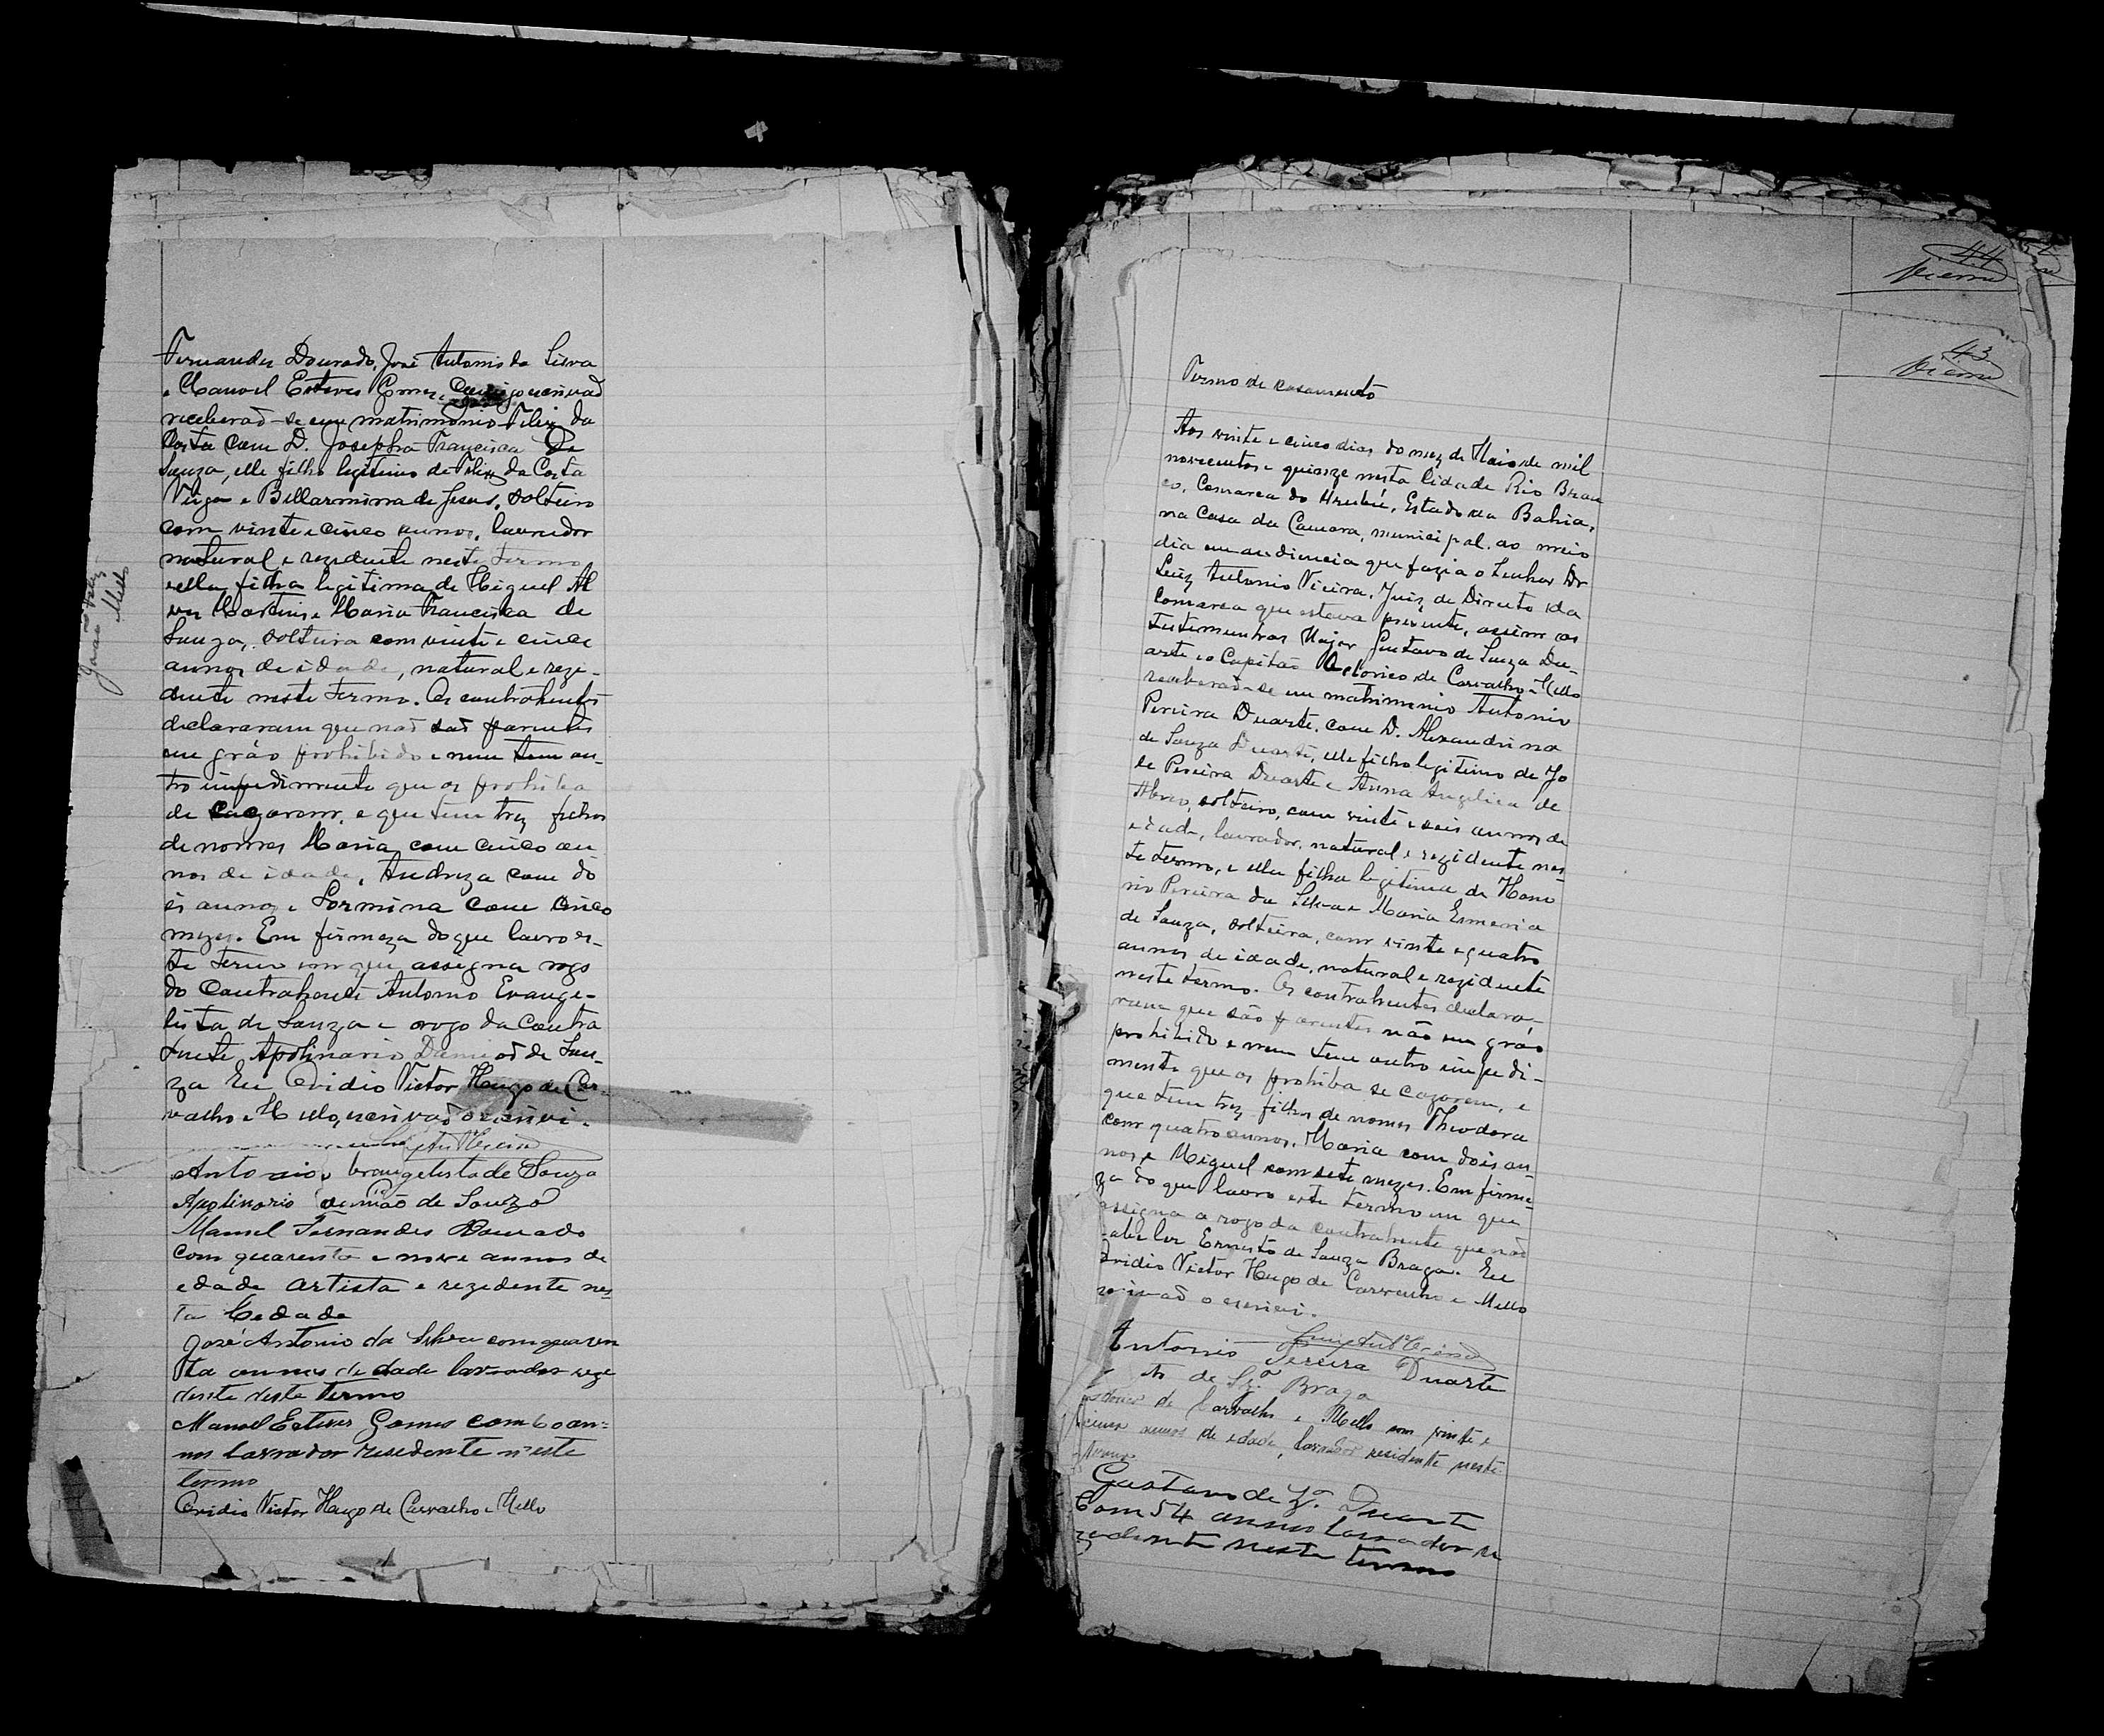 Fernandes Dourado, José Antonio da Silva
e Manoel Esteves Gomes, comigo escrivaõ
receberaõ-se em matrimonio Felix da
Costa com D. Josepha Francisca de
Souza, elle filho legitimo de Felix da Costa
Veiga e Bellarmina de Jesus, solteiro
com vinte e cinco annos, lavrador
natural e rezidente neste termo
e ella filha legitima de Miguel Al
ves Martins e Maria Francisca de
Souza, solteira com vinte e cinco
annos de idade, natural e rezi-
dente neste termo. Os contrahentes
declararam que naõ saõ parentes
em gráo prohibido e nem tem ou-
tro impedimento que os prohiba
de cazarem, e que tem trez filhos
de nomes Maria com cinco an
nos de idade, Andreza com do
is annos e Sormina com cinco
mezes. Em firmeza do que lavro es-
te termo em que assigna rogo
do contrahente Antonio Evange-
lista de Souza e arogo da Contra
hente Apolinario Damiaõ de Sou-
za Eu Ovidio Victor Hugo de Car-
valho e Mello, escrivaõ o escrevi.
Antonio Evangelista de Souza
Apolinario Damião de Souza
Manoel Fernandes Dourado
com quarenta e nove annos de
edade artista e rezedente nes
ta Cedade
José Antonio da Silva com quaren
ta annos de edade lavrador reze
dente deste termo
Manoel Esteves Gomes com 60 an=
nos lavrador resedente n'este
termo
Ovidio Victor Hugo de Carvalho e Mello
João Felix
Mello
44
Vieira
43
Vieira
Termo de casamento
Aos vinte e cinco dias do mez de Maio de mil
novecentos e quinze nesta Cidade Rio Bran
co, Comarca do Urubú, Estado da Bahia,
na Casa da Camara, municipal, ao meio
dia em audiencia que fazia o Senhor Dr
Luiz Antonio Vieira, Juiz de Direito da
Comarca que estava prezente, assim as
testemunhas Major Gustavo de Souza Du-
arte e o Capitaõ de Carvalho e Mello
receberaõ-se em matrimonio Antonio
Pereira Duarte, com D. Alexandrina
de Souza Duarte, elle filho legitimo de Jo
se Pereira Duarte e Anna Angelica de
Abreo, solteiro, com vinte e seis annos de
edade, lavrador, natural e rezidente nes-
te termo, e ella filha legitima de Hono
rio Pereira da Silva e Maria Esmeria
de Souza, solteira, com vinte e quatro
annos de idade, natural e rezidente
neste termo. Os contrahentes declara-
ram que são parentes não em gráo
prohibido e nem tem outro impedi-
mento que os prohiba se cazarem, e
que tem trez filhos de nomes Theodora
com quatro annos, Maria com dois an
nos e Miguel com sete mezes. Em firme-
za do que lavro este termo em que
assigna a rogo da contrahente que naõ
sabe ler Ernesto de Souza Braga. Eu
Ovidio Victor Hugo de Carvalho e Mello
escrivaõ o escrevi.
Luiz Antº Vieira
Antonio Pereira Duarte
de Sz.ª Braga
de Carvalho e Mello com vinte e
cinco annos de edade, lavrador residente neste
termo
Gustavo de Z.ª Duarte
Com 54 annos lavrador re
zedente neste termo